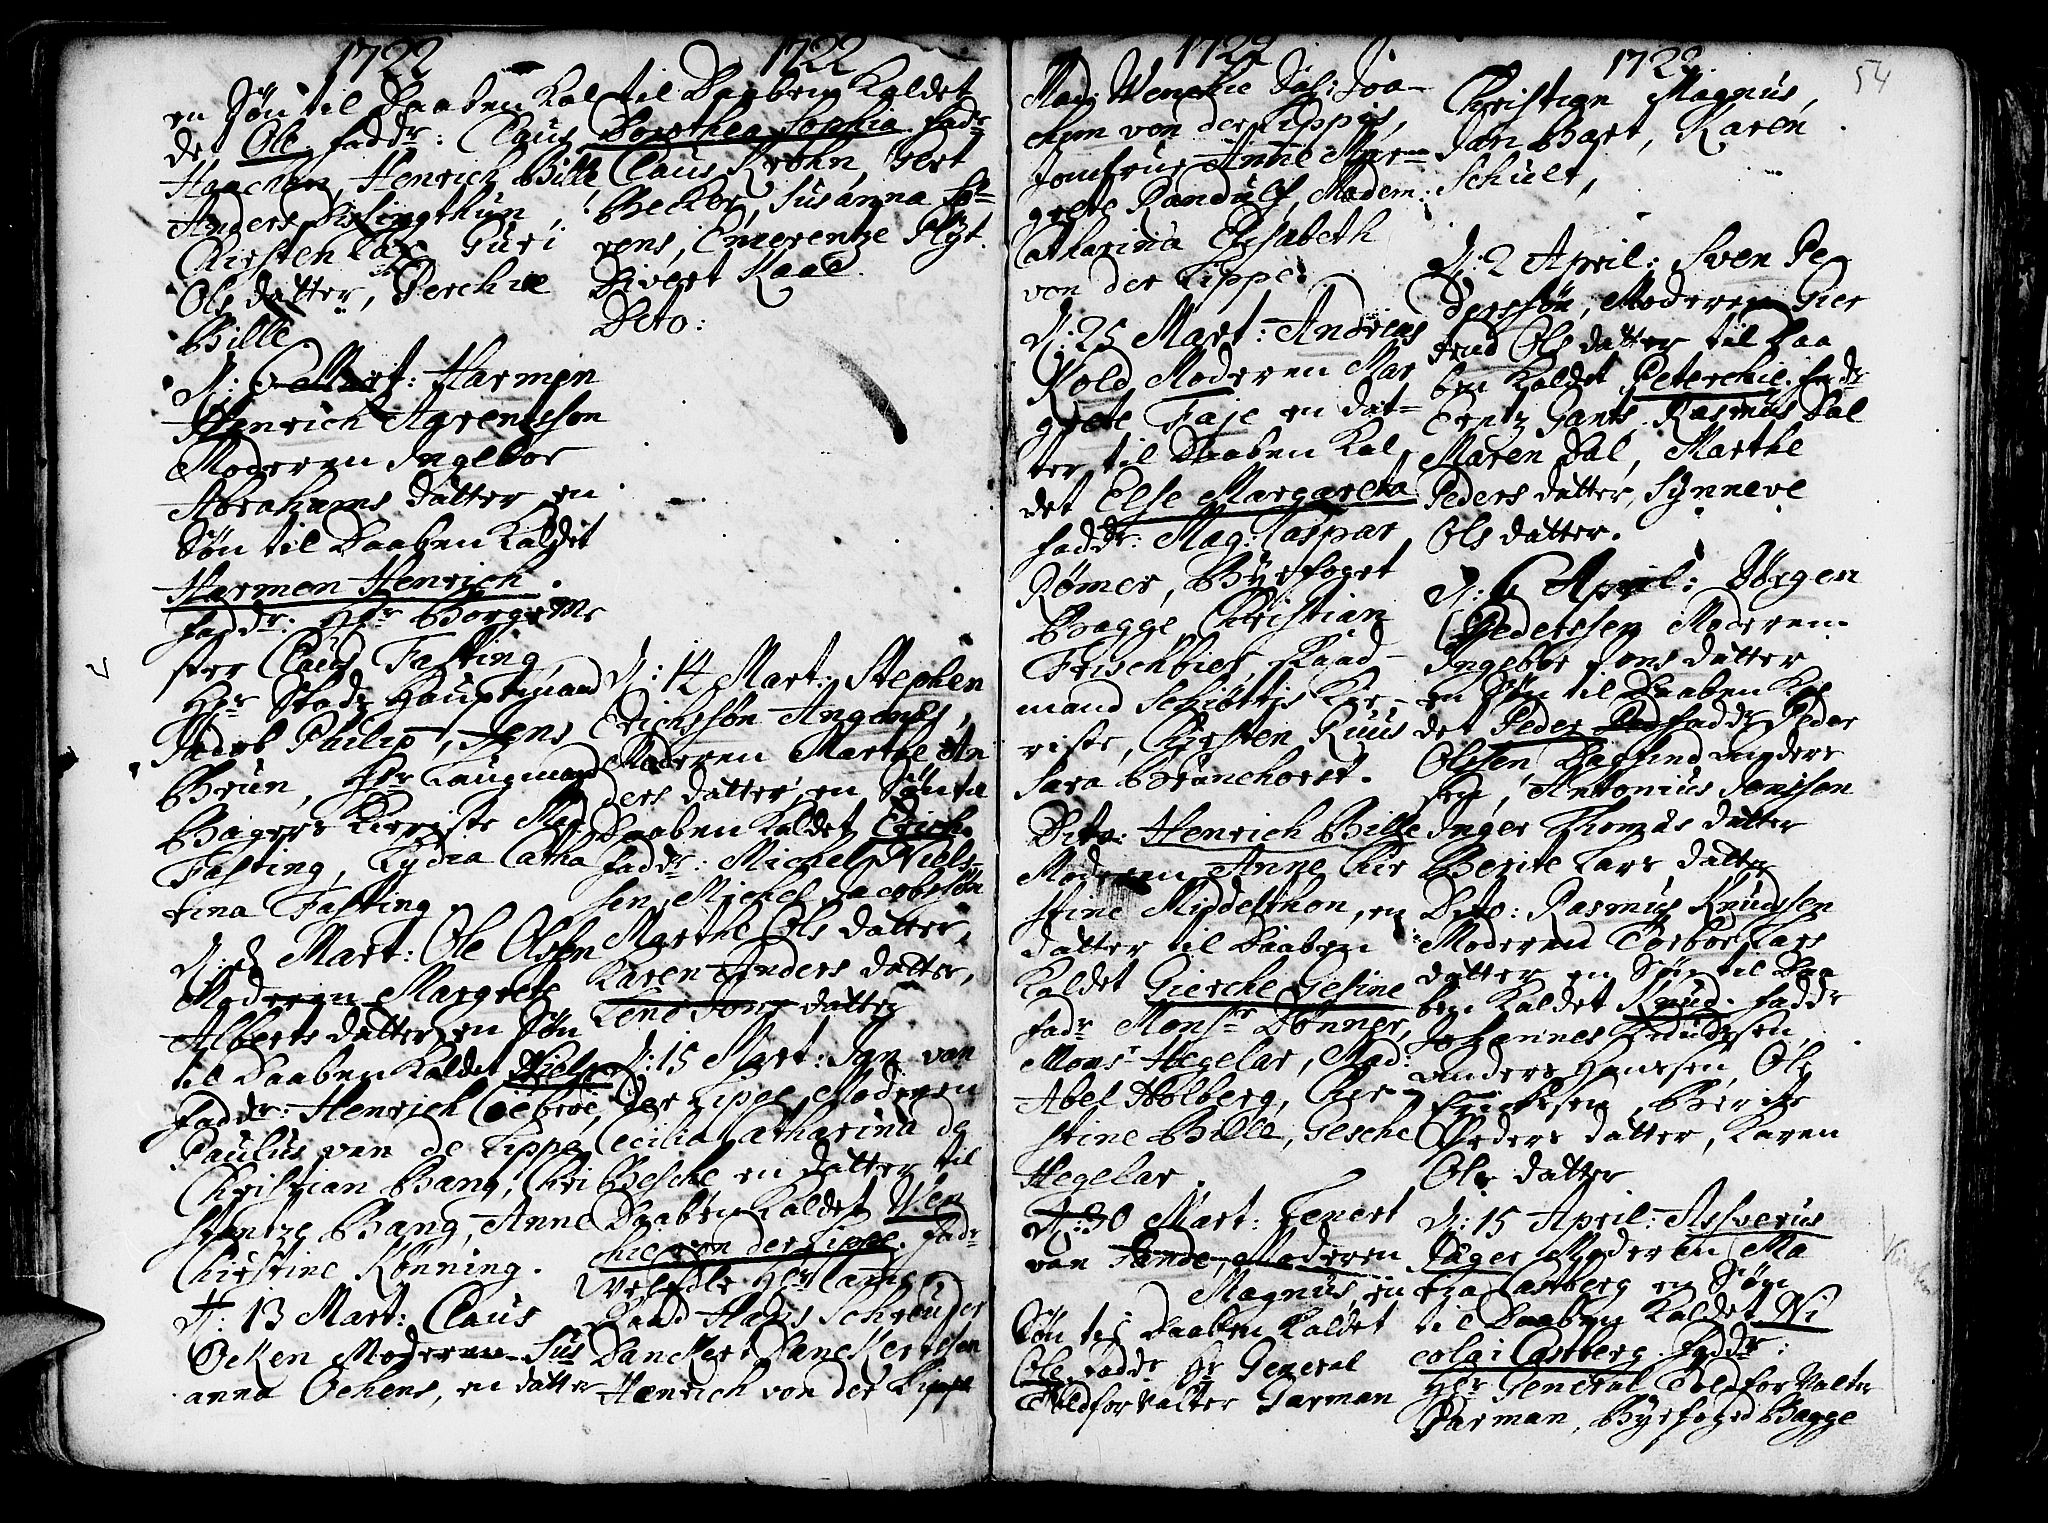 1722
en Søn til Daaben Kal
det Ole. fadd: Claus
Henrich Bille
Anders
Kirsten Guri
Ols datter, Gerchie
Bille
Mart: Harmen
Henrich Agrentsson
Moderen Ingebor
Abrahams datter en
Søn til Daaben Kaldet
Harmen Henrich.
faddr: Hr Borgeme
ster Claus Fasting,
Hr Stadz Hauptmand
Jacob Philip, Jens
Brun, Hr Laugmand
Bagers Kieriste Mag
Fasting, Lydia Catha
rina Fasting.
Mart: Ole Olsen
Moderen Margrete
Alberts datter, en Søn
til Daaben Kaldet Niels
faddr: Henrich
Paulus van de Lippe,
Christian Bang, Chri
stentze Bang, Anne
Christine Rønning.
D: 13 Mart: Claus
Ocken Moderen Sus
anna Ochens, en datter
1722
til Daaben Kaldet
Dorothea Sophia fadr
Claus Krohn, Gert
Becker, Susanna So-
rens, Emerentze Fløgt.
Sivert Kaae.
Dito:
D: 14 Mart: Stephen
Moderen Marthe An
ders datter, en Søn til
Daaben Kaldet Erich.
faddr: Michel Niels-
sen, Michel Jacobssøn
Marthe Ols datter,
Karen Anders datter,
Lene Jons datter
D: 15 Mart: Jan van
der Lippe, Moderen
Cecilia Catharina de
Besche en datter til
Daaben Kaldet Wen
chie von der Lippe. fadr
Weledle Hr Cammer
Raad Hans Schreuder
Danckert Danckertsen
Henrich von der Lippe
1722
Mad: Wenchie Sal: Joa-
chim von der Lippes,
Jomfrue Anne Mar-
grete Randulf, Madem:
Catharina Elisabeth
von der Lippe.
D: 25 Mart: Andreas
Kold, Moderen Mar
grete Faje en dat-
ter til Daaben Kal
det Else Margareta
faddr: Mag: Caspar
Rømer, Byefoget
Bagge Christian
Frischbier, Raad-
mand Schiøttis Kie-
riste, Kirsten Ruus
Sara Brunchorst.
Dito: Henrich Bille
Moderen Anne Kir
stine Middelthon, en
datter til Daaben
Kaldet Gierche Gesine
fadr Monsr Dønner,
Monsr Hegelar, Mad:
Abel Holberg, Chir
stine Bille, Gesche
Hegelar.
D: 30 Mart: Lenert
van Sande, Moderen
Magnus, en
Søn til Daaben Kaldet
Ole, faddr Hr General
Toldforvalter Garman
1722.
54
Christian Magnus,
Jan Bart, Karen
Schult,
D: 2 April: Sven Pe
derssøn, Moderen Gier
trud Ols datter til Daa
ben Kaldet Peterchie. fadr
Gants. Rasmus Dal
Maren Dal, Marthe
Peders datter, Synneve
Ols datter.
D: 6 April: Jørgen
Pederssen Moderen
Ingebor Jons datter
en Søn til Daaben Kal
det Peder faddr Peder
Olssen Anders
sen, Antonius Jonssen
Inger Thomas datter
Berite Lars datter
Dito: Rasmus Knudssen
Moderen Torbor Lars
datter en Søn til Daa
ben Kaldet Knud. faddr
Johannes Knudssen,
Anders Hanssen, Ole
Erichssen, Berite
Peders datter, Karen
Ols datter
D: 15 April: Assverus
Jæger Moderen Ma
ria Castberg en Søn
til Daaben Kaldet Ni
colai Castberg. faddr:
Hr General Toldforvalter
Garman, Byefoged Bagge